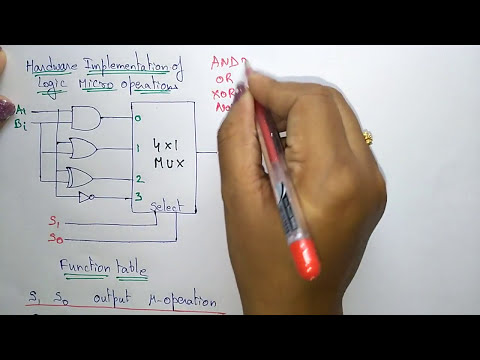 Hardware Implementation of
Logic Micro operations
AND
OR
XOR
Ai
Bi
0
1
2
3
4x1
MUX
Select
S1
S0
Function table
S1 S0 output μ-operation